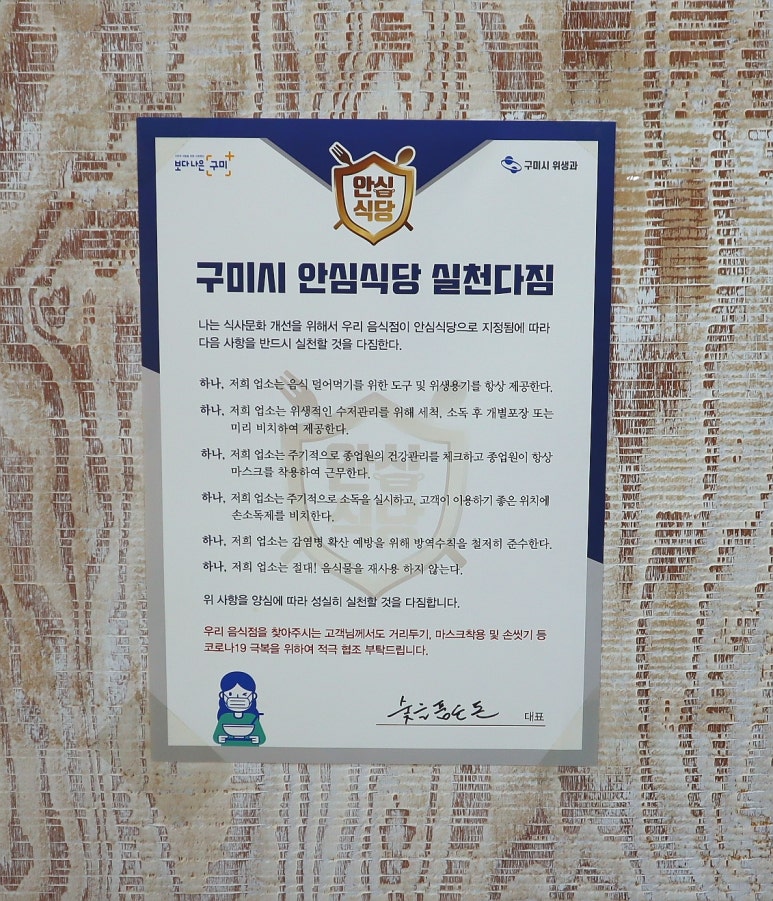 보다 나은 구미
구미시 위생과
안심
식당
구미시 안심식당 실천다짐
나는 식사문화 개선을 위해서 우리 음식점이 안심식당으로 지정됨에 따라
다음 사항을 반드시 실천할 것을 다짐한다.
하나. 저희 업소는 음식 덜어먹기를 위한 도구 및 위생용기를 항상 제공한다.
하나. 저희 업소는 위생적인 수저관리를 위해 세척, 소독 후 개별포장 또는
미리 비치하여 제공한다.
하나. 저희 업소는 주기적으로 종업원의 건강관리를 체크하고 종업원이 항상
마스크를 착용하여 근무한다.
하나. 저희 업소는 주기적으로 소독을 실시하고, 고객이 이용하기 좋은 위치에
손소독제를 비치한다.
하나. 저희 업소는 감염병 확산 예방을 위해 방역수칙을 철저히 준수한다.
하나. 저희 업소는 절대! 음식물을 재사용 하지 않는다.
위 사항을 양심에 따라 성실히 실천할 것을 다짐합니다.
우리 음식점을 찾아주시는 고객님께서도 거리두기, 마스크착용 및 손씻기 등
코로나19 극복을 위하여 적극 협조 부탁드립니다.
대표